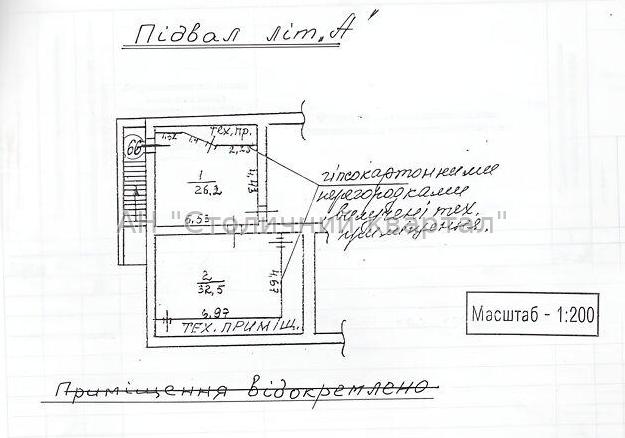 Підвал літ. „А"
66
1,32
1,4
Тех. пр.
2,25
1
26,2
4,43
6.53
гіпсокартонними
перегородками
вилучені тех.
приміщення.
АН "Столичний Квартал"
2
32,5
4,67
6.97
ТЕХ. ПРИМІЩ.
Масштаб - 1:200
Приміщення відокремлено